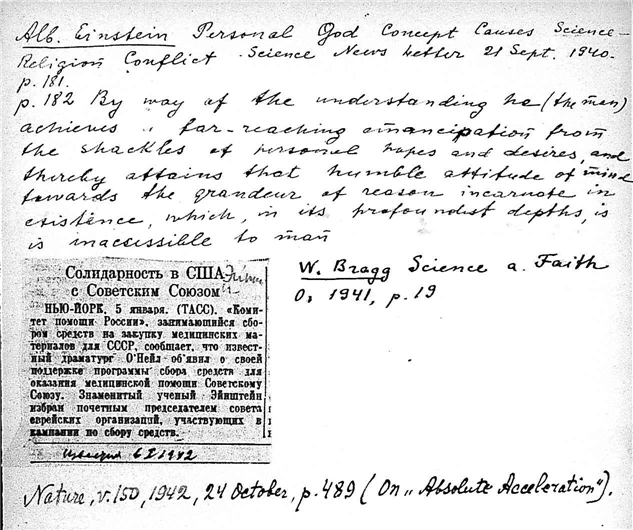 Alb. Einstein Personal God Concept Causes Science-
Religion Conflict. Science News Letter 21 Sept. 1940.
p. 181.
p. 182 By way of the understanding he (the man)
achieves a far-reaching emancipation from
the shackles of personal hopes and desires, and
thereby attains that humble attitude of mind
towards the grandeur of reason incarnate in
existence, which, in its profoundist depths, is
is inaccessible to man
Солидарность в США
с Советским Союзом
НЬЮ-ЙОРК, 5 января. (ТАСС). «Коми-
тет помощи России», занимающийся сбо-
ром средств на закупку медицинских ма-
териалов для СССР, сообщает, что извест-
ный драматург О'Нейл об'явил о своей
поддержке программы сбора средств для
оказания медицинской помощи Советскому
Союзу. Знаменитый ученый Эйнштейн
избран почетным председателем совета
еврейских организаций, участвующих в
кампании по сбору средств.
Известия 6 I 1942
W. Bragg Science a. Faith
O. 1941, p. 19
Nature, v. 150, 1942, 24 October, p. 489 (On „Absolute Acceleration").